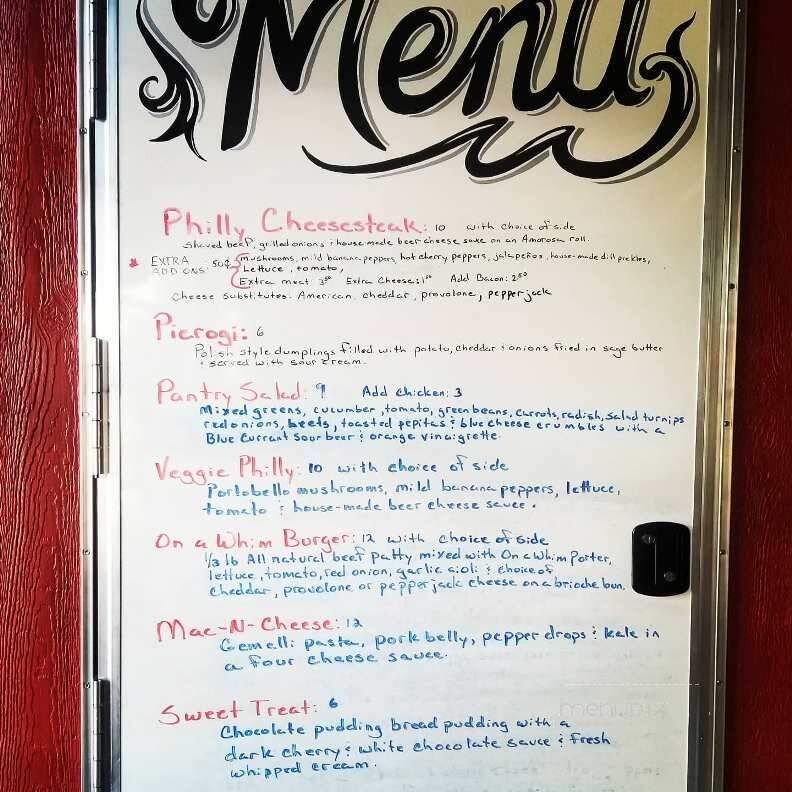 Menu
Philly Cheesesteak: 10 with choice of side
shaved beef, grilled onions & house made beer cheese sauce on an Amorosa roll.
* EXTRA ADD ONS: 50¢ { mushrooms, mild banana peppers, hot cherry peppers, jalapeños, house-made dill pickles,
Lettuce, tomato,
Extra meat: 3⁵⁰ Extra Cheese: 1⁵⁰ Add Bacon: 2⁵⁰
Cheese substitutes: American, cheddar, provolone, pepperjack
Pierogi: 6
Polish style dumplings filled with potato, cheddar & onions fried in sage butter
& served with sour cream.
Pantry Salad: 9 Add chicken: 3
Mixed greens, cucumber, tomato, green beans, carrots, radish, salad turnips
red onions, beets, toasted pepitas & blue cheese crumbles with a
Blue Currant sour beer & orange vinaigrette.
Veggie Philly: 10 with choice of side
Portobello mushrooms, mild banana peppers, lettuce,
tomato & house-made beer cheese sauce.
On a Whim Burger: 12 with choice of side
1/3 lb All natural beef patty mixed with On a Whim Porter,
lettuce, tomato, red onion, garlic aioli & choice of
cheddar, provolone or pepperjack cheese on a brioche bun.
Mac-N-Cheese: 12
Gemelli pasta, pork belly, pepper drops & kale in
a four cheese sauce.
Sweet Treat: 6
Chocolate pudding bread pudding with a
dark cherry & white chocolate sauce & fresh
whipped cream.